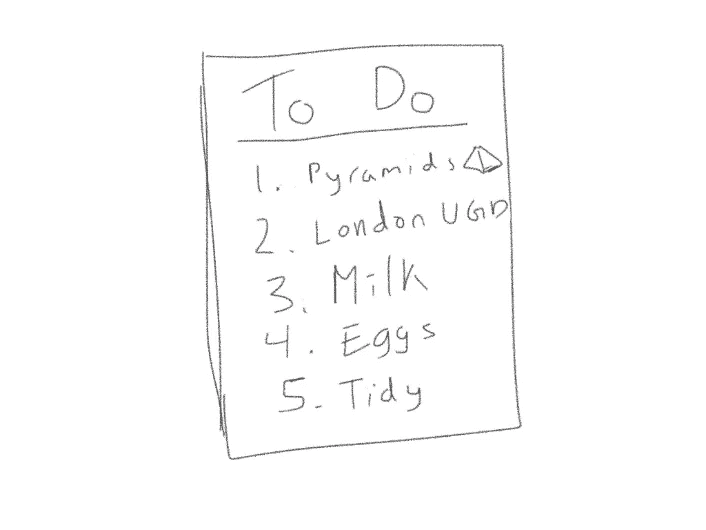 To Do
1. Pyramids
2. London UGD
3. Milk
4. Eggs
5. Tidy